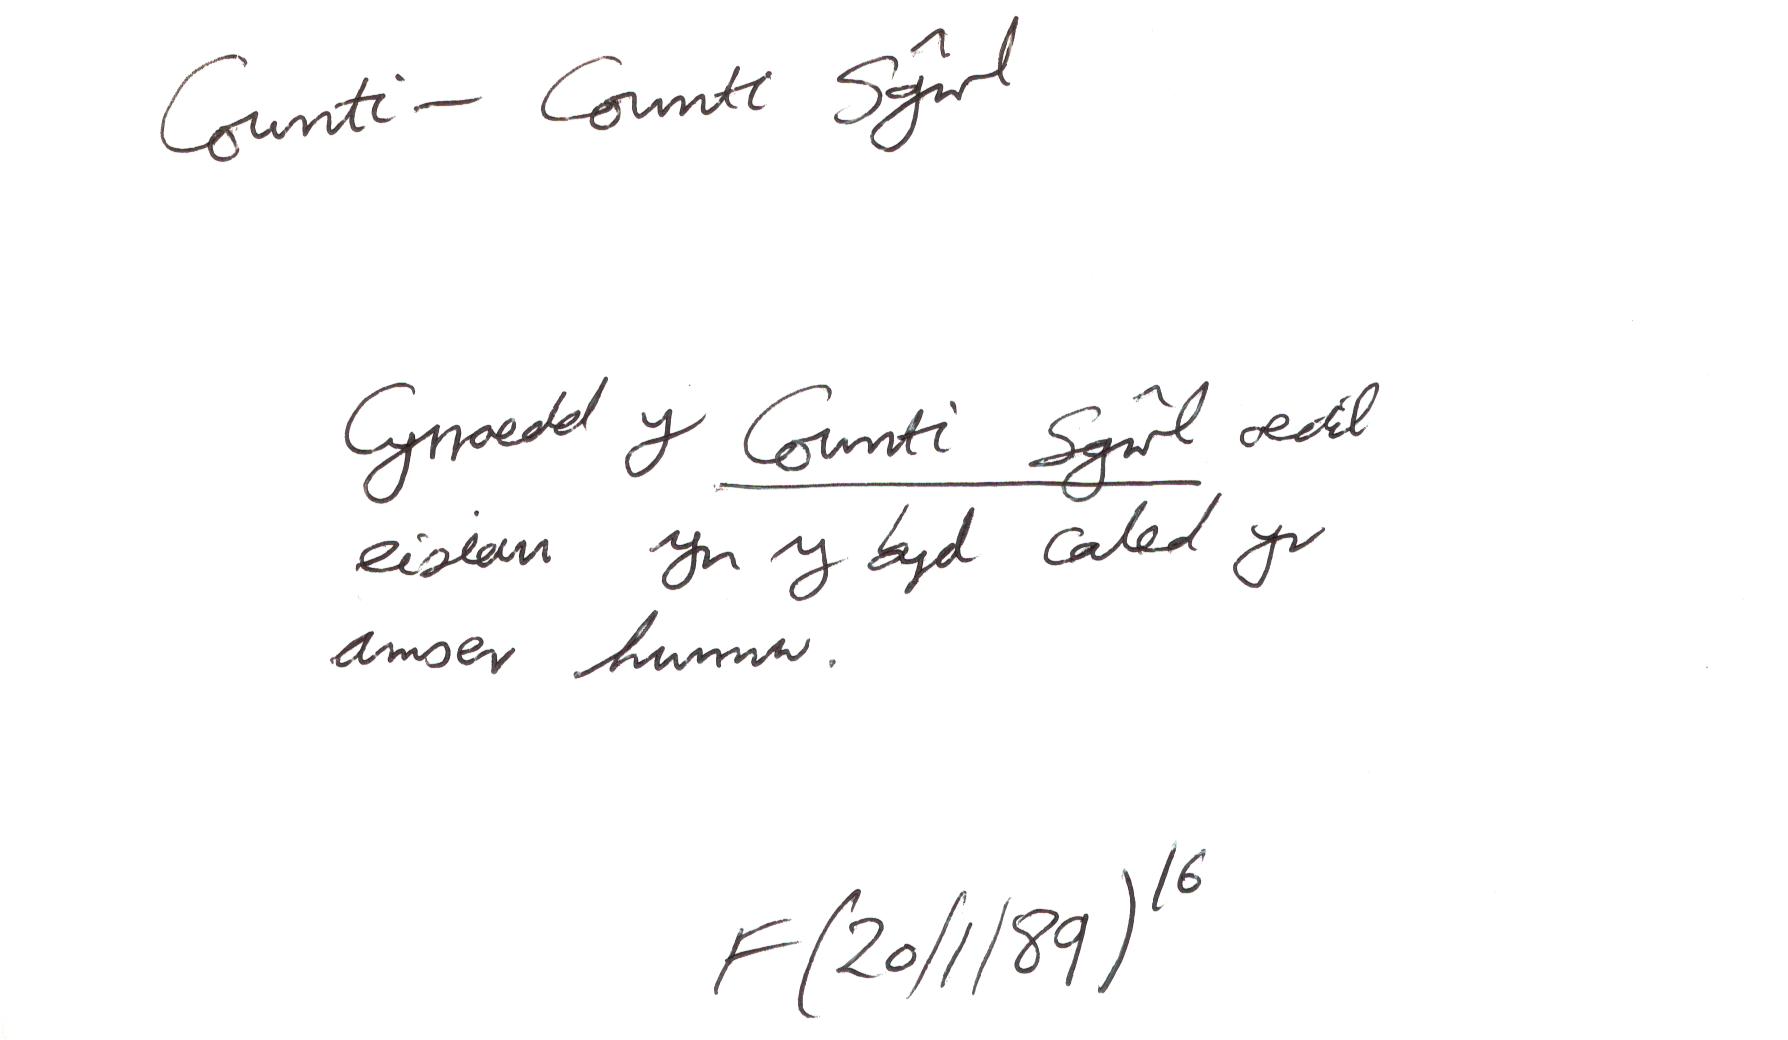 Counti - Counti Sgŵl
Cynnoedd y Counti Sgŵl oedd
eisiau yn y byd caled yr
amser hunnw.
F (20/1/89) 16